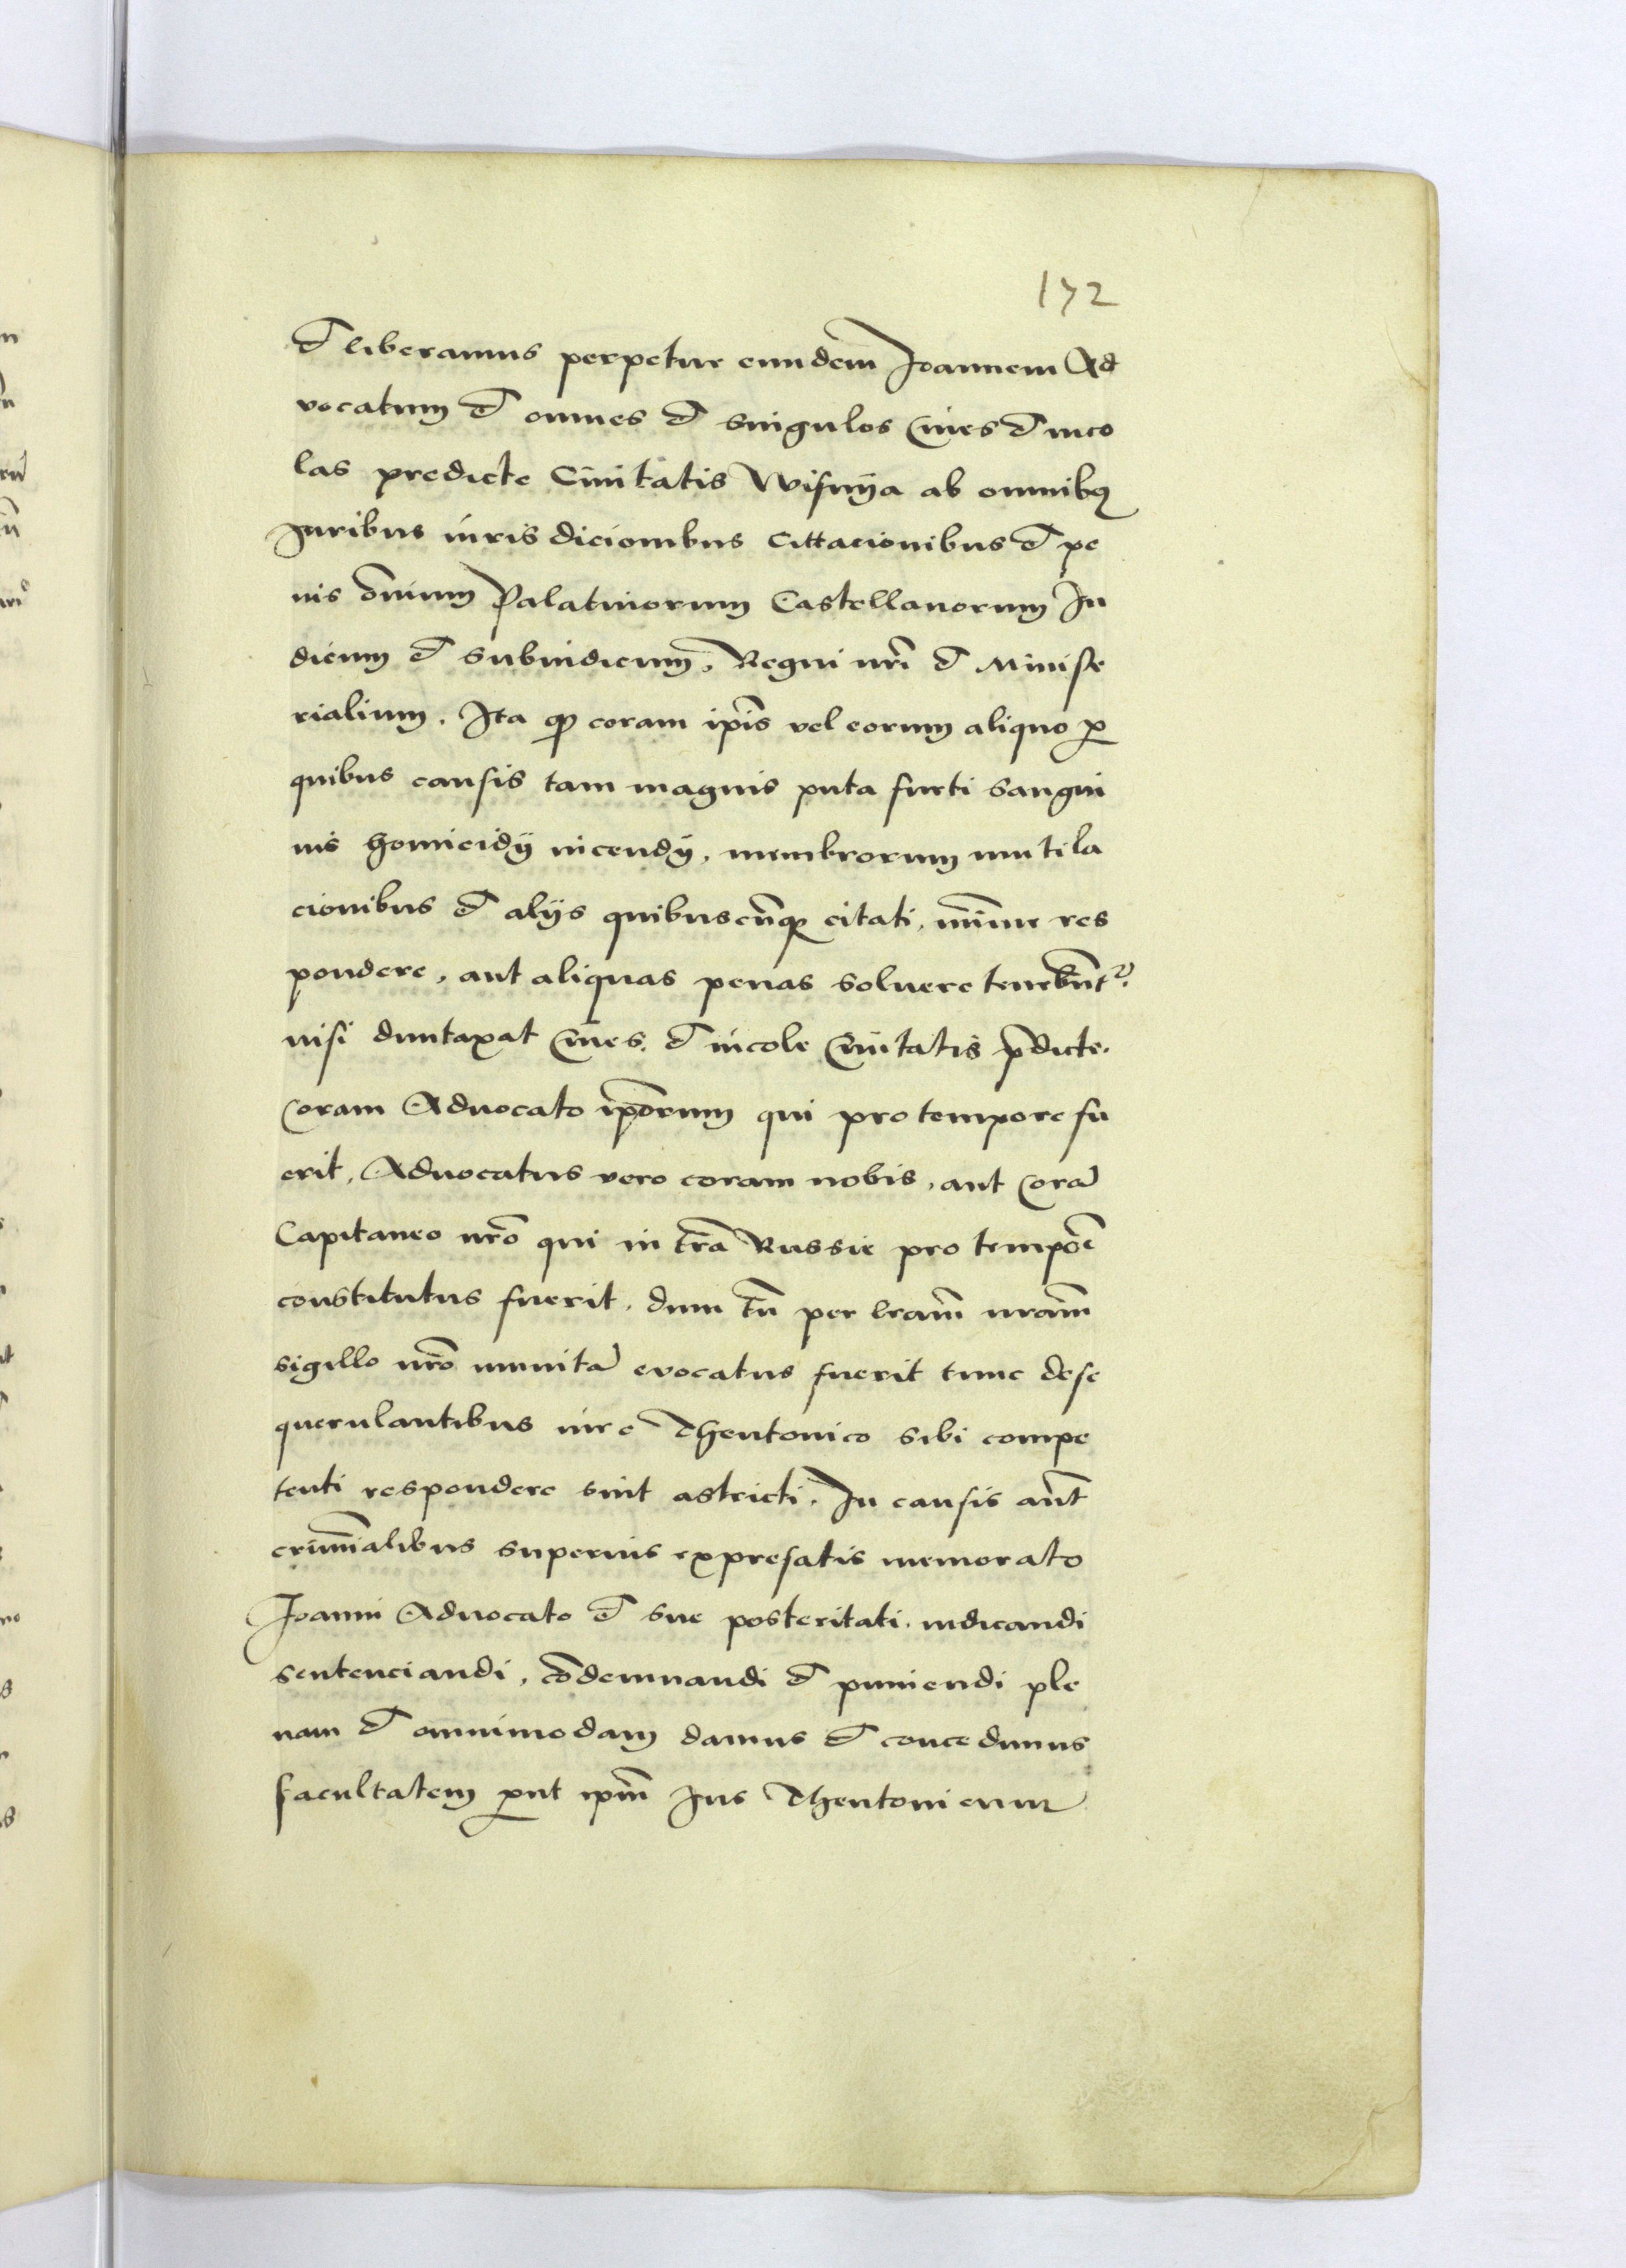 172
et liberamus perpetue eundem Joannem Ad
vocatum et omnes et singulos Cives et inco
las predicte Civitatis Wisnya ab omnibq
Juribus iurisdicionibus Cittacionibus et pe
nis om̄ium Palatinorum Castellanorum Ju
dicum et Subiudicum, Regni nrī et Ministe
rialium. Ita qꝫ coram ip̄is vel eorum aliquo p̲
quibus causis tam magnis puta furti sangui
nis homicidy incendy, membrorum mutila
cionibus et alys quibuscūqꝫ citati, mīnime res
pondere, aut aliquas penas soluere tenebūtᷣ.
nisi duntaxat Cives. et incole Civitatis p̄dicte.
Coram Advocato ip̄orum qui pro tempore fu
erit, Advocatus vero coram nobis, aut Corā
Capitaneo nrō qui in tr̄a Russie pro tempōe
constitutus fuerit, dum tn̄ per lr̄am nr̄am
sigillo nrō munitā evocatus fuerit tunc de se
querulantibus iure Theutonico sibi compe
tenti respondere sint astricti. In causis aūt
crimīalibus superius expressatis memorato
Joanni Advocato et sue posteritati. iudicandi
sentenciandi, cōdemnandi et puniendi ple
nam et omnimodam damus et concedimus
facultatem put ip̄m Jus Theutonicum